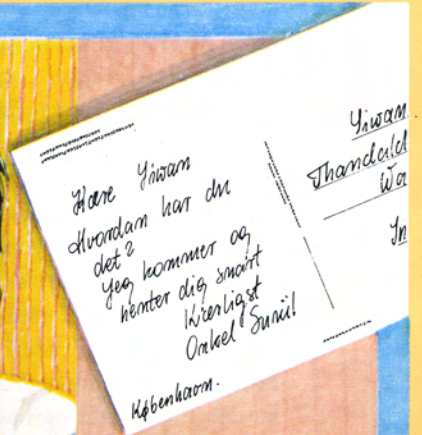 Kære Jiwan
Hvordan har du
det?
Jeg kommer og
henter dig snart
Kærligst
Onkel Sunil!
København.
Jiwan
Thandald
Wa
In